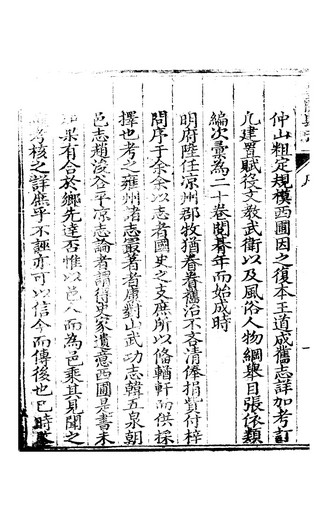 序
仲山粗定規模西圃因之復本王道成舊志詳加考訂
凡建置賦役文教武衛以及風俗人物綱舉目張依類
編次彙為二十卷閱朞年而始成時
明府陞任涼州郡牧猶眷眷舊治不吝清俸捐貲付梓
問序于余余以志者國史之支庶所以俻輶軒而供採
擇也考之雍州諸志最著者康對山武功志韓五泉朝
邑志趙浚谷平凉志論者謂得史家遺意西圃是書未
果有合於鄉先達否惟以邑人而為邑乘其見聞之
考核之詳庶乎不誣亦可以信今而傳後也已時